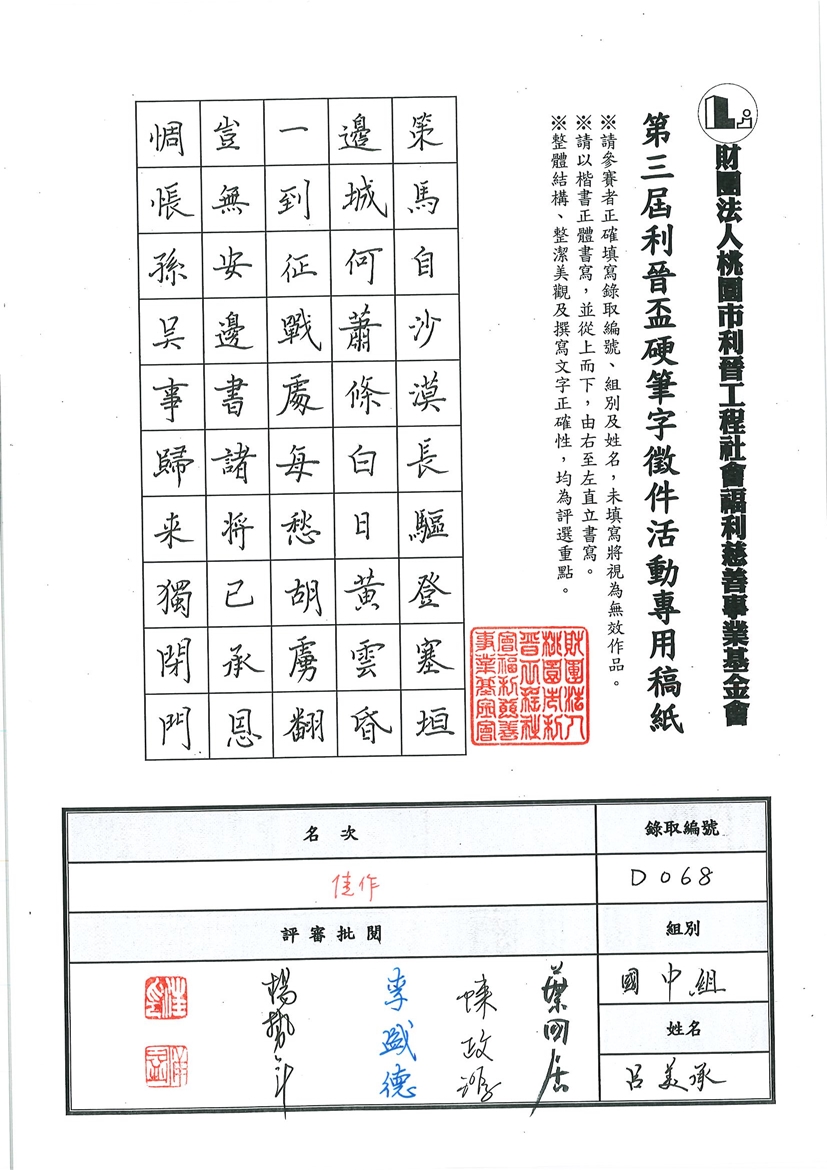 財團法人桃園市利晉工程社會福利慈善事業基金會
第三屆利晉盃硬筆字徵件活動專用稿紙
※請參賽者正確填寫錄取編號、組別及姓名，未填寫將視為無效作品。
※請以楷書正體書寫，並從上而下，由右至左直立書寫。
※整體結構、整潔美觀及撰寫文字正確性，均為評選重點。
財團法人
桃園市利
晉工程社
會福利慈善
事業基金會
策馬自沙漠長驅登塞垣
邊城何蕭條白日黃雲昏
一到征戰處每愁胡虜翻
豈無安邊書諸將已承恩
惆悵孫吳事歸来獨閉門
錄取編號
D068
組別
國中組
姓名
呂美承
名次
佳作
評審批閱
葉國居
陳政源
李盛德